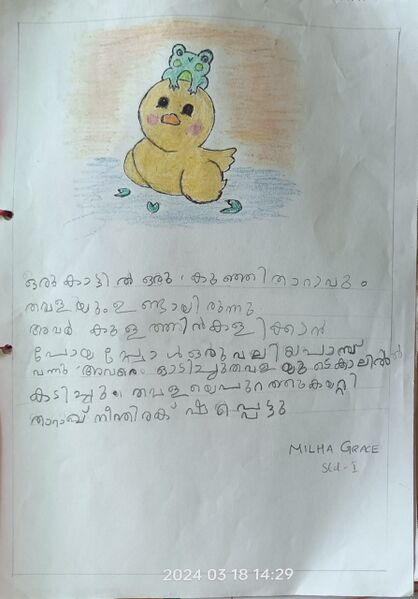 ഒരു കാട്ടിൽ ഒരു കുഞ്ഞി താറാവും
തവളയും ഉണ്ടായിരുന്നു
അവർ കുളത്തിൽ കളിക്കാൻ
പോയപ്പോൾ ഒരു വലിയ പാമ്പ്
വന്നു അവരെ ഓടിച്ചു തവളയുടെ കാലിൽ
കടിച്ചു തവളയെ പുറത്തു കയറ്റി
താറാവ് നീന്തി രക്ഷപ്പെട്ടു
MILHA GRACE
Std - I
2024 03 18 14:29